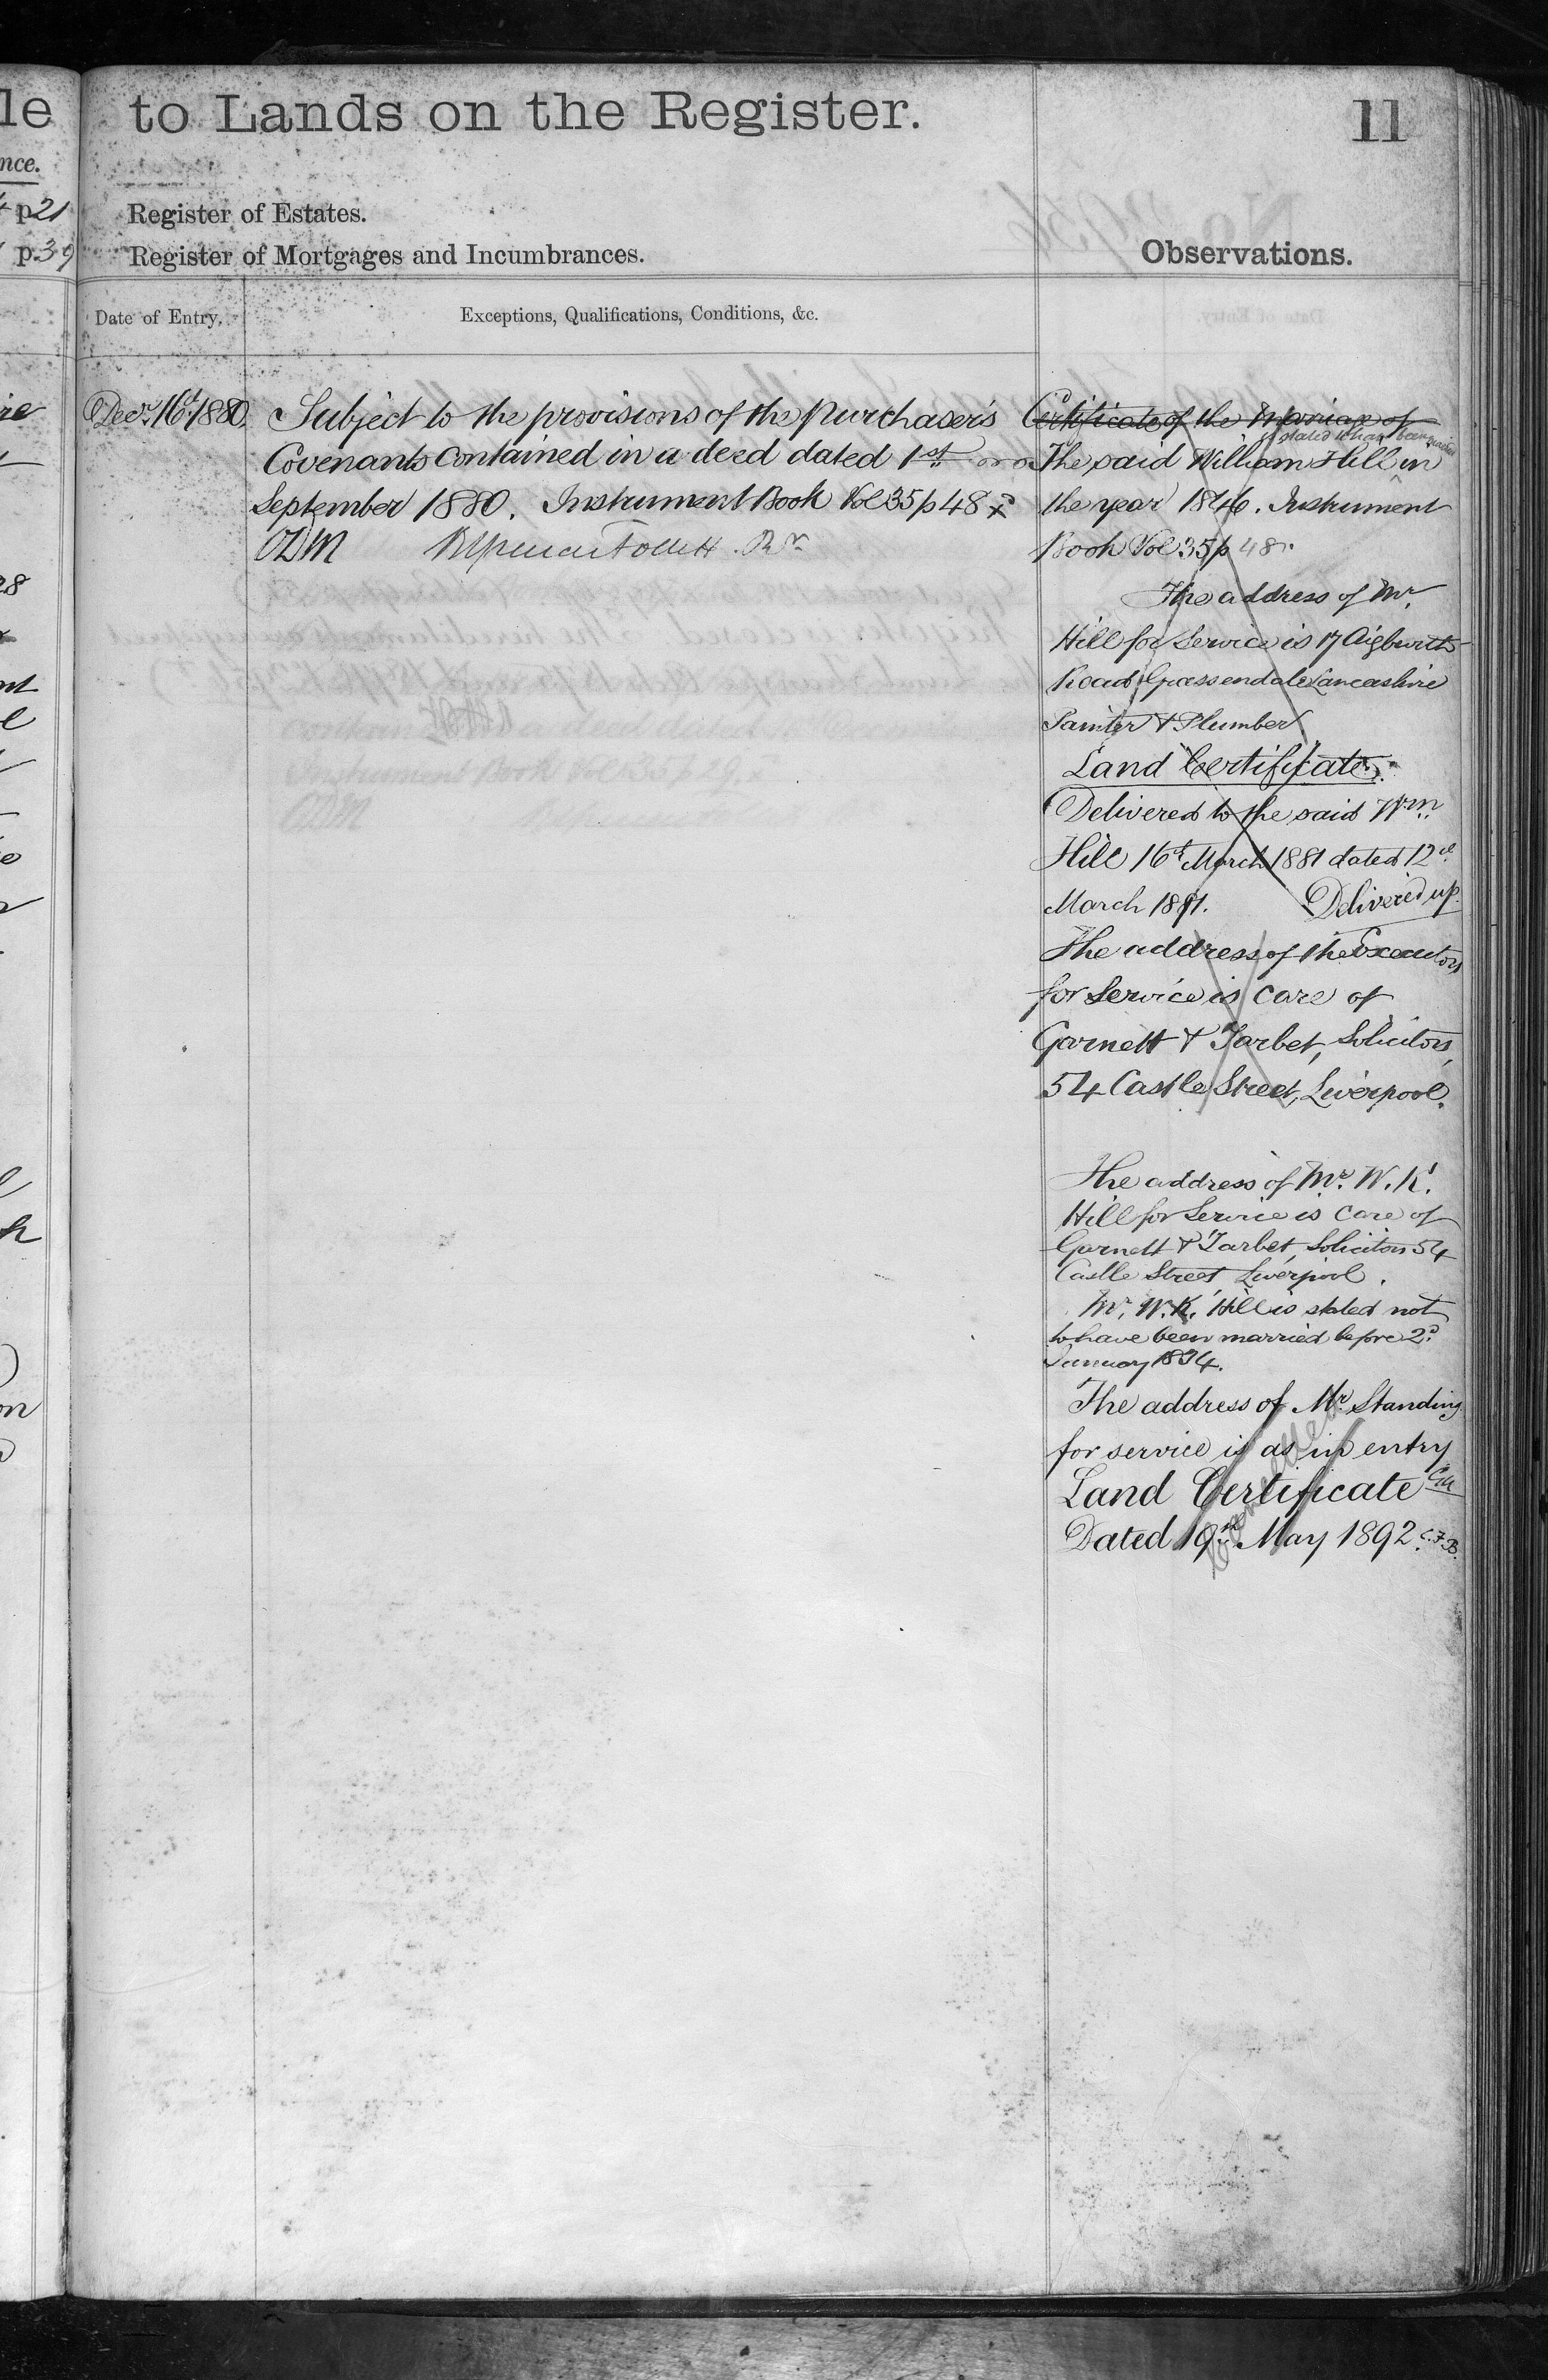 le
to Lands on the Register.
11
nce.
p21
Register of Estates.
p.39
Register of Mortgages and Incumbrances.
Observations.
Date of Entry.
Exceptions, Qualifications, Conditions, &c.
Decr. 16th 1880.
Subject to the provisions of the purchaser's
Covenants contained in a deed dated 1st
September 1880. Instrument Book Vol 35 p 48 x
ODM
Certificate of the Marriage of
is stated to have been married
The said William Hill in
the year 1846. Instrument
Book Vol 35 p 48.
The address of Mr.
Hill for Service is 17 Aigburth
Road Grassendale Lancashire
Painter & Plumber
Land Certificate.
Delivered to the said Wm.
Hill 16th March 1881 dated 12th
March 1881. Delivered up.
The address of the Executors
for Service is care of
Garnett & Tarbet, Solicitors,
54 Castle Street, Liverpool.
The address of Mr. W. K.
Hill for Service is care of
Garnett & Tarbet, Solicitors 54
Castle Street, Liverpool.
Mr. W. K. Hill is stated not
to have been married before 2d.
January 1834.
The address of Mr Standing
for service is as in entry
Land Certificate
Dated 19th May 1892 C.F.B.
Cancelled